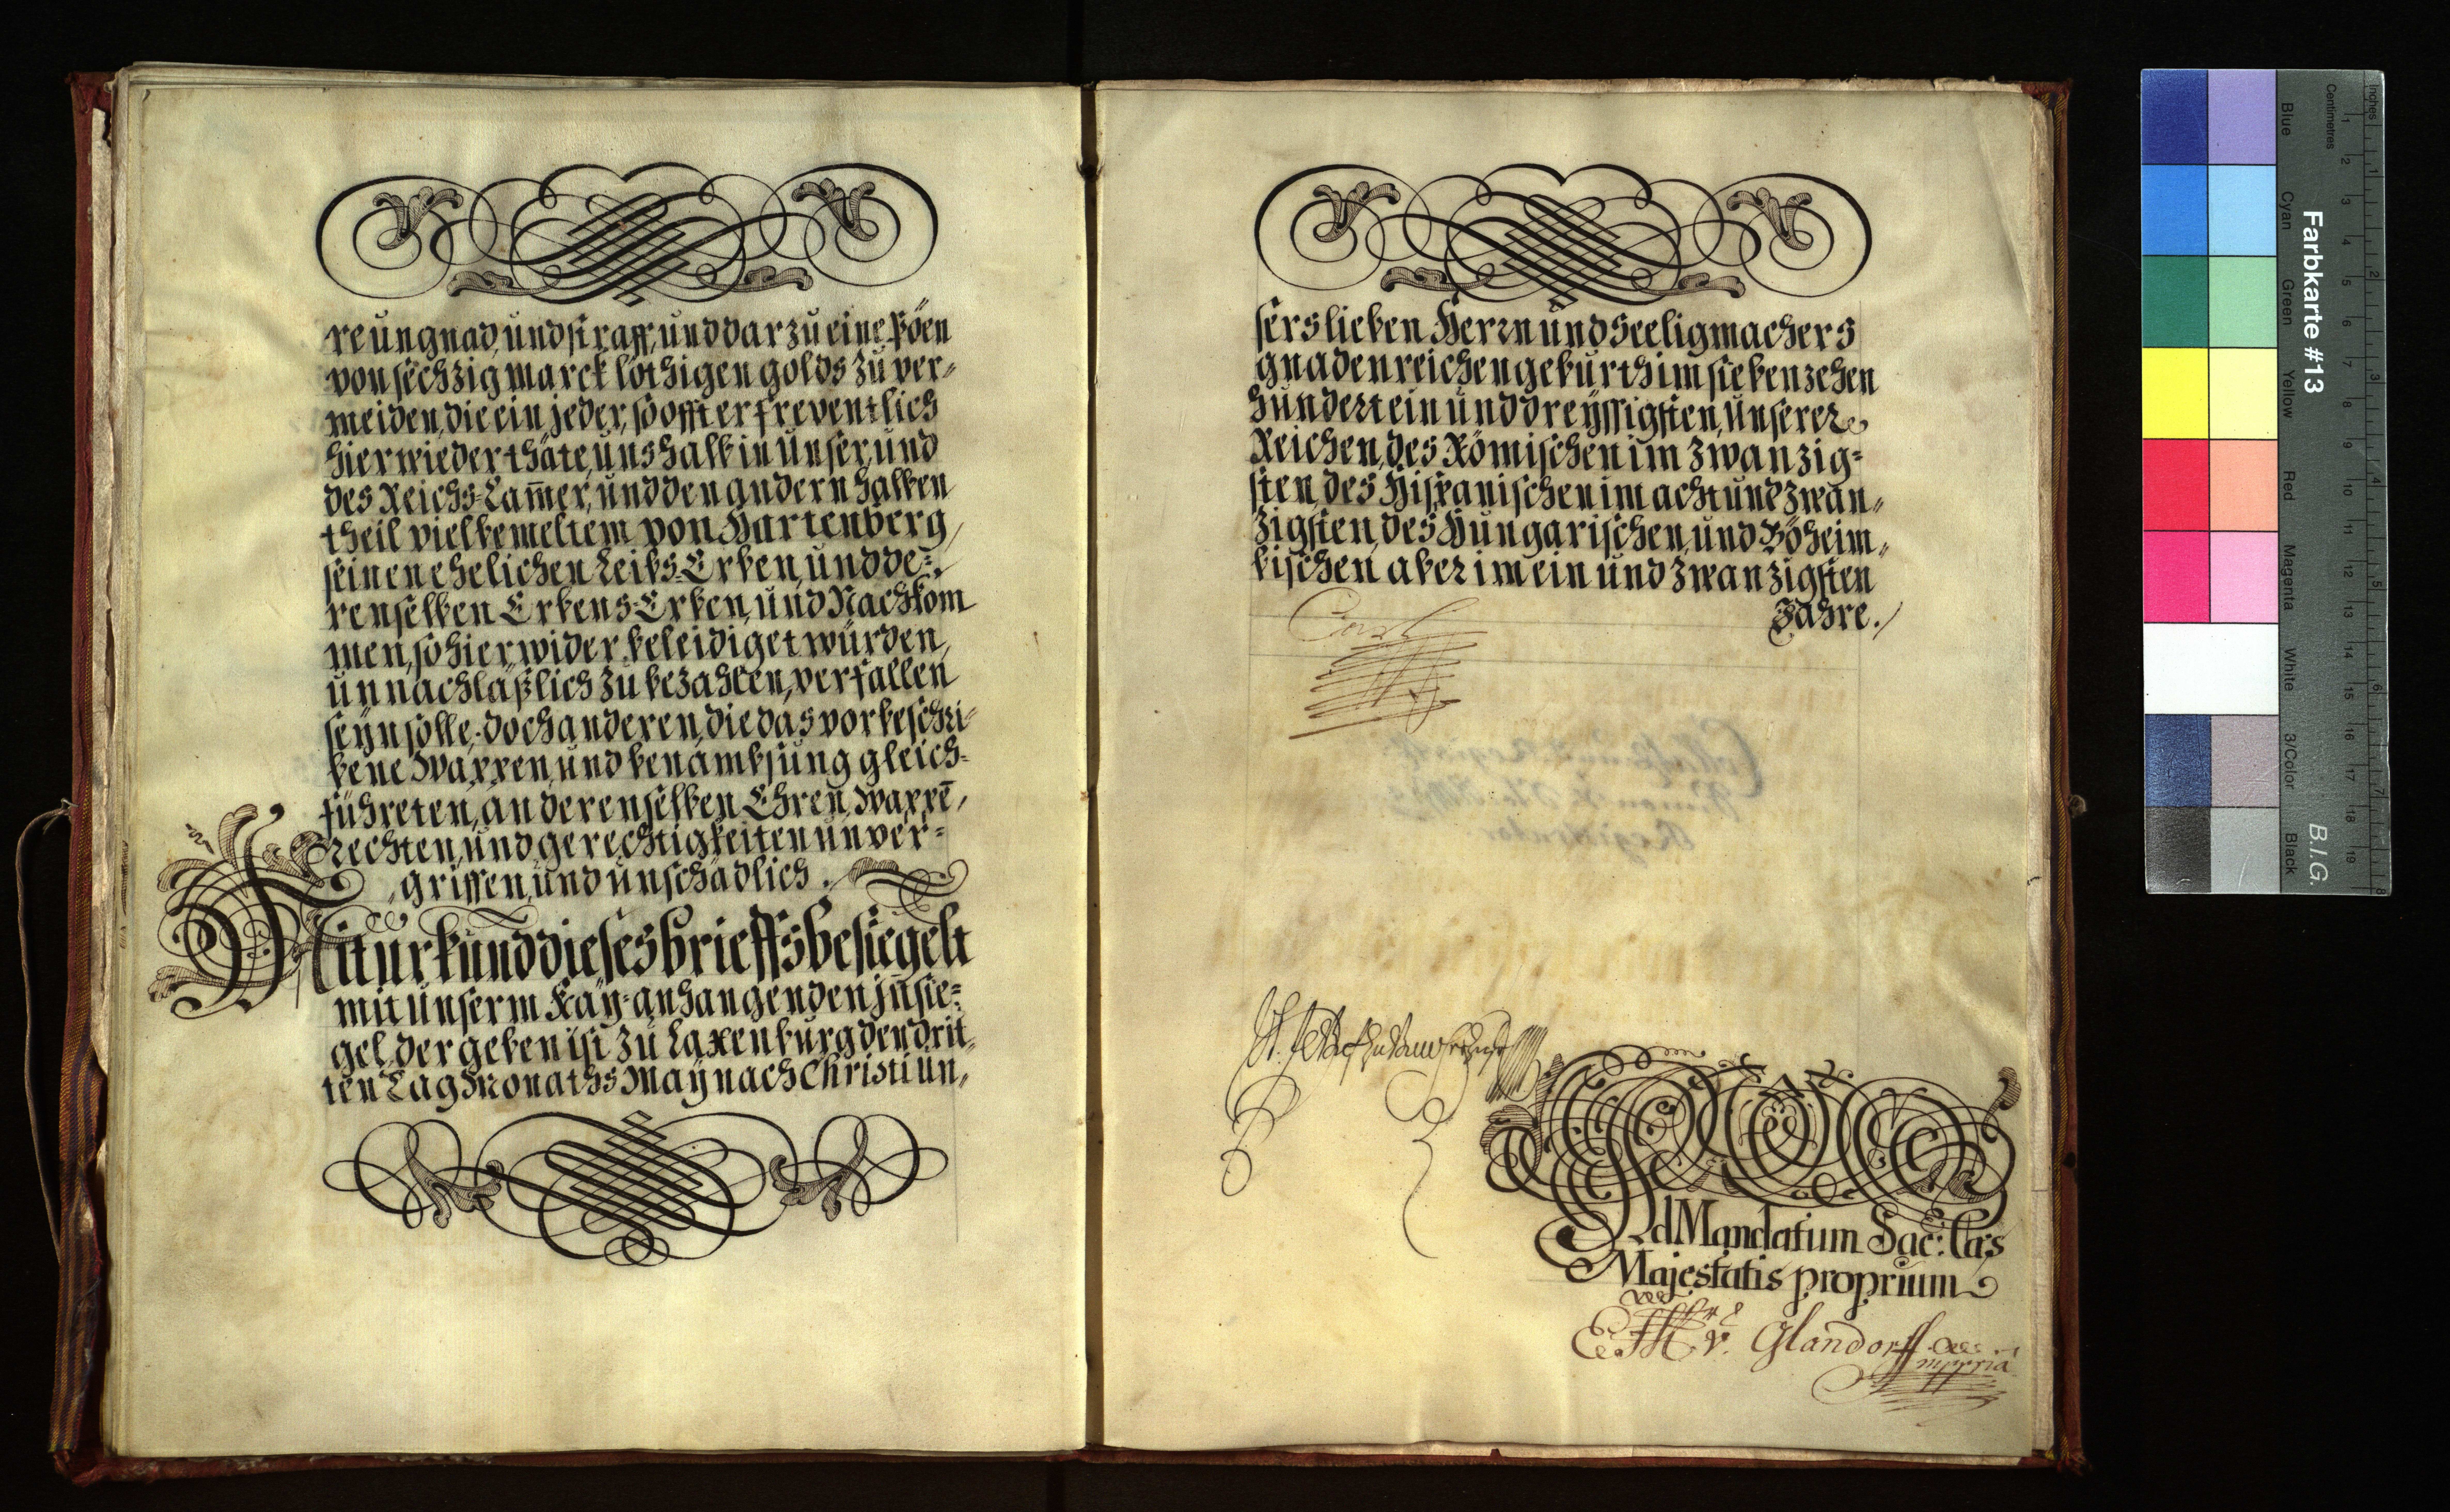 re ungnad, und straff, und darzu eine Pöen
von sechzig marck löthigen golds zu ver=
meiden, die ein jeder, so offt er freventlich
hierwieder thäte, uns halb in unser, und
des Reichs=Cam̄er, und den andern halben
theil vielbemeltem von Hartenberg,
seinen ehelichen Leibs=Erben, und de=
renselben Erbens=Erben, und Nachkom
men, so hierwider beleidiget würden,
unnachläßlich zu bezahlen, verfallen
seÿn solle; doch anderen, die das vorbeschri=
bene Wappen, und benambsung gleich=
führeten, an derenselben Ehren, Wappē,
rechten, und gerechtigkeiten unver=
griffen, und unschädlich.
Mit urkund dieses brieffs besiegelt
mit unserm Kaÿ=anhangenden jn̄sie=
gel, der geben ist zu Laxenburg den drit=
ten Tag Monaths Maÿ nach Christi un=
sers lieben Herrn und Seeligmachers
gnadenreichen geburth im siebenzehen
hundert ein und dreÿssigsten, unserer
Reichen, des Römischen im zwanzig=
sten, des Hispanischen im acht und zwan=
zigsten, des Hungarischen, und Böheim=
bischen aber im ein und zwanzigsten
Jahre.
Carl
Ad Mandatum Sac: Caes
Majestatis proprium
v. Glandorff
mppria
Farbkarte #13
B.I.G.
Inches
Centimetres
1 2 3 4 5 6 7 8 9 10 11 12 13 14 15 16 17 18 19
1 2 3 4 5 6 7 8
Blue
Cyan
Green
Yellow
Red
Magenta
White
3/Color
Black